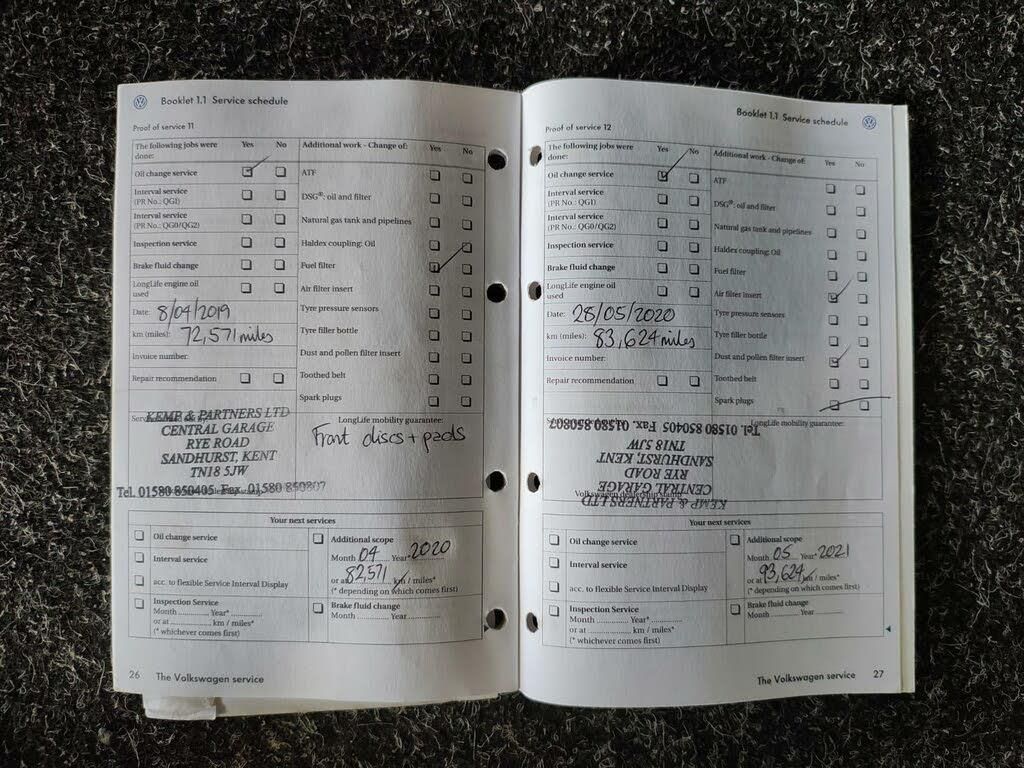 Booklet 1.1 Service schedule
Proof of service 11
The following jobs were done: Yes No
Oil change service
Interval service (PR No.: QGI)
Interval service (PR No.: QG0/QG2)
Inspection service
Brake fluid change
LongLife engine oil used
Date: 8/04/2019
km (miles): 72,571 miles
Invoice number:
Repair recommendation
Additional work - Change of: Yes No
ATF
DSG®: oil and filter
Natural gas tank and pipelines
Haldex coupling: Oil
Fuel filter
Air filter insert
Tyre pressure sensors
Tyre filler bottle
Dust and pollen filter insert
Toothed belt
Spark plugs
KEMP & PARTNERS LTD
CENTRAL GARAGE
RYE ROAD
SANDHURST, KENT
TN18 5JW
Tel. 01580 850405 Fax 01580 850807
LongLife mobility guarantee:
Front discs + pads
Your next services
Oil change service
Interval service
acc. to flexible Service Interval Display
Inspection Service
Month ............ Year* ............
or at ............ km / miles*
(* whichever comes first)
Additional scope
Month 04 Year* 2020
or at 82,571 km / miles*
(* depending on which comes first)
Brake fluid change
Month ............ Year ............
26 The Volkswagen service
Booklet 1.1 Service schedule
Proof of service 12
The following jobs were done: Yes No
Oil change service
Interval service (PR No.: QGI)
Interval service (PR No.: QG0/QG2)
Inspection service
Brake fluid change
LongLife engine oil used
Date: 28/05/2020
km (miles): 83,624 miles
Invoice number:
Repair recommendation
Additional work - Change of: Yes No
ATF
DSG®: oil and filter
Natural gas tank and pipelines
Haldex coupling: Oil
Fuel filter
Air filter insert
Tyre pressure sensors
Tyre filler bottle
Dust and pollen filter insert
Toothed belt
Spark plugs
LongLife mobility guarantee:
KEMP & PARTNERS LTD
CENTRAL GARAGE
RYE ROAD
SANDHURST, KENT
TN18 5JW
Tel. 01580 850405 Fax 01580 850807
Volkswagen dealership stamp
Your next services
Oil change service
Interval service
acc. to flexible Service Interval Display
Inspection Service
Month ............ Year* ............
or at ............ km / miles*
(* whichever comes first)
Additional scope
Month 05 Year* 2021
or at 93,624 km / miles*
(* depending on which comes first)
Brake fluid change
Month ............ Year ............
The Volkswagen service 27